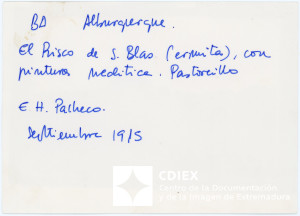 BA Alburquerque.
El Risco de S. Blas (ermita), con
pinturas neolitica. Pastorcillo
E H. Pacheco.
Septiembre 1915
CDIEX
Centro de la Documentación
y de la Imagen de Extremadura